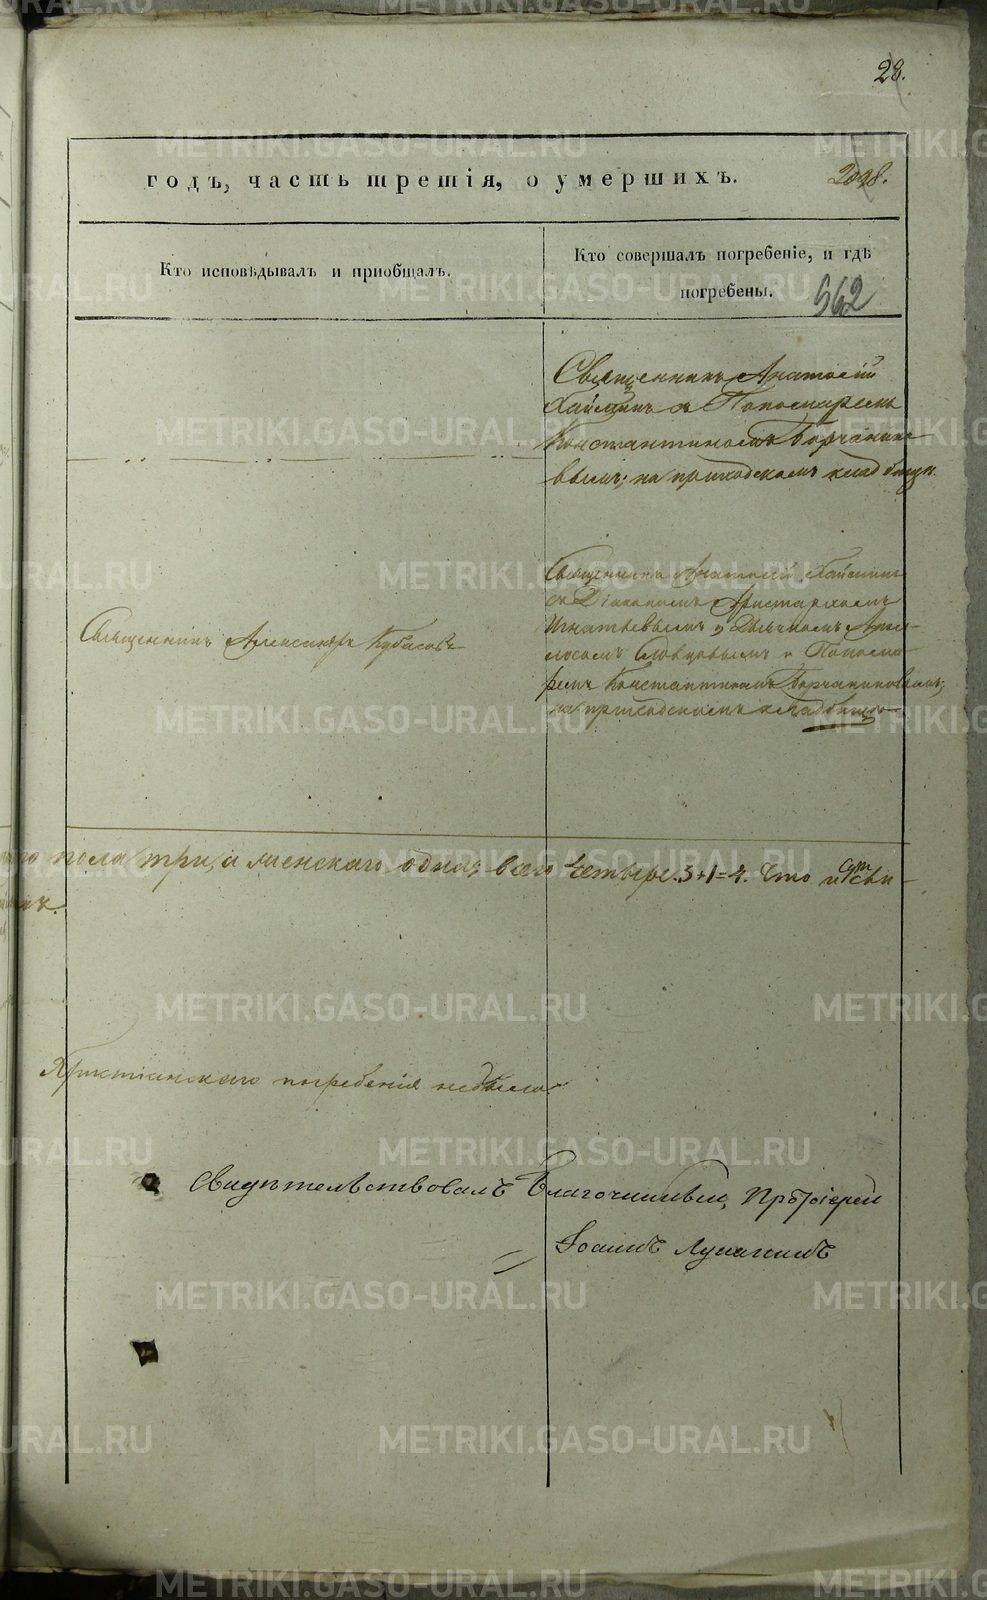 28.
годъ, часть третія, о умершихъ.
Кто исповѣдывалъ и приобщалъ.
Кто совершалъ погребеніе, и гдѣ
погребены.
562
Священникъ Анатолій
Хайминъ съ Пономаремъ
Константиномъ Борчанино-
вымъ; на приходскомъ кладбищѣ.
Священникъ Александръ Кубасовъ
Священникъ Анатолій Хайминъ
съ Діакономъ Аристархомъ
Игнатьевымъ, Дьячкомъ
Словцовымъ и Понома-
ремъ Константиномъ Борчаниновымъ;
на приходскомъ кладбищѣ
пола три, а женскаго одна; всего четыре. 3+1=4. Что
Христіанскаго погребенія небыло.
Свидѣтельствовалъ Благочинный, Протоіерей
Іоаннъ
METRIKI.GASO-URAL.RU